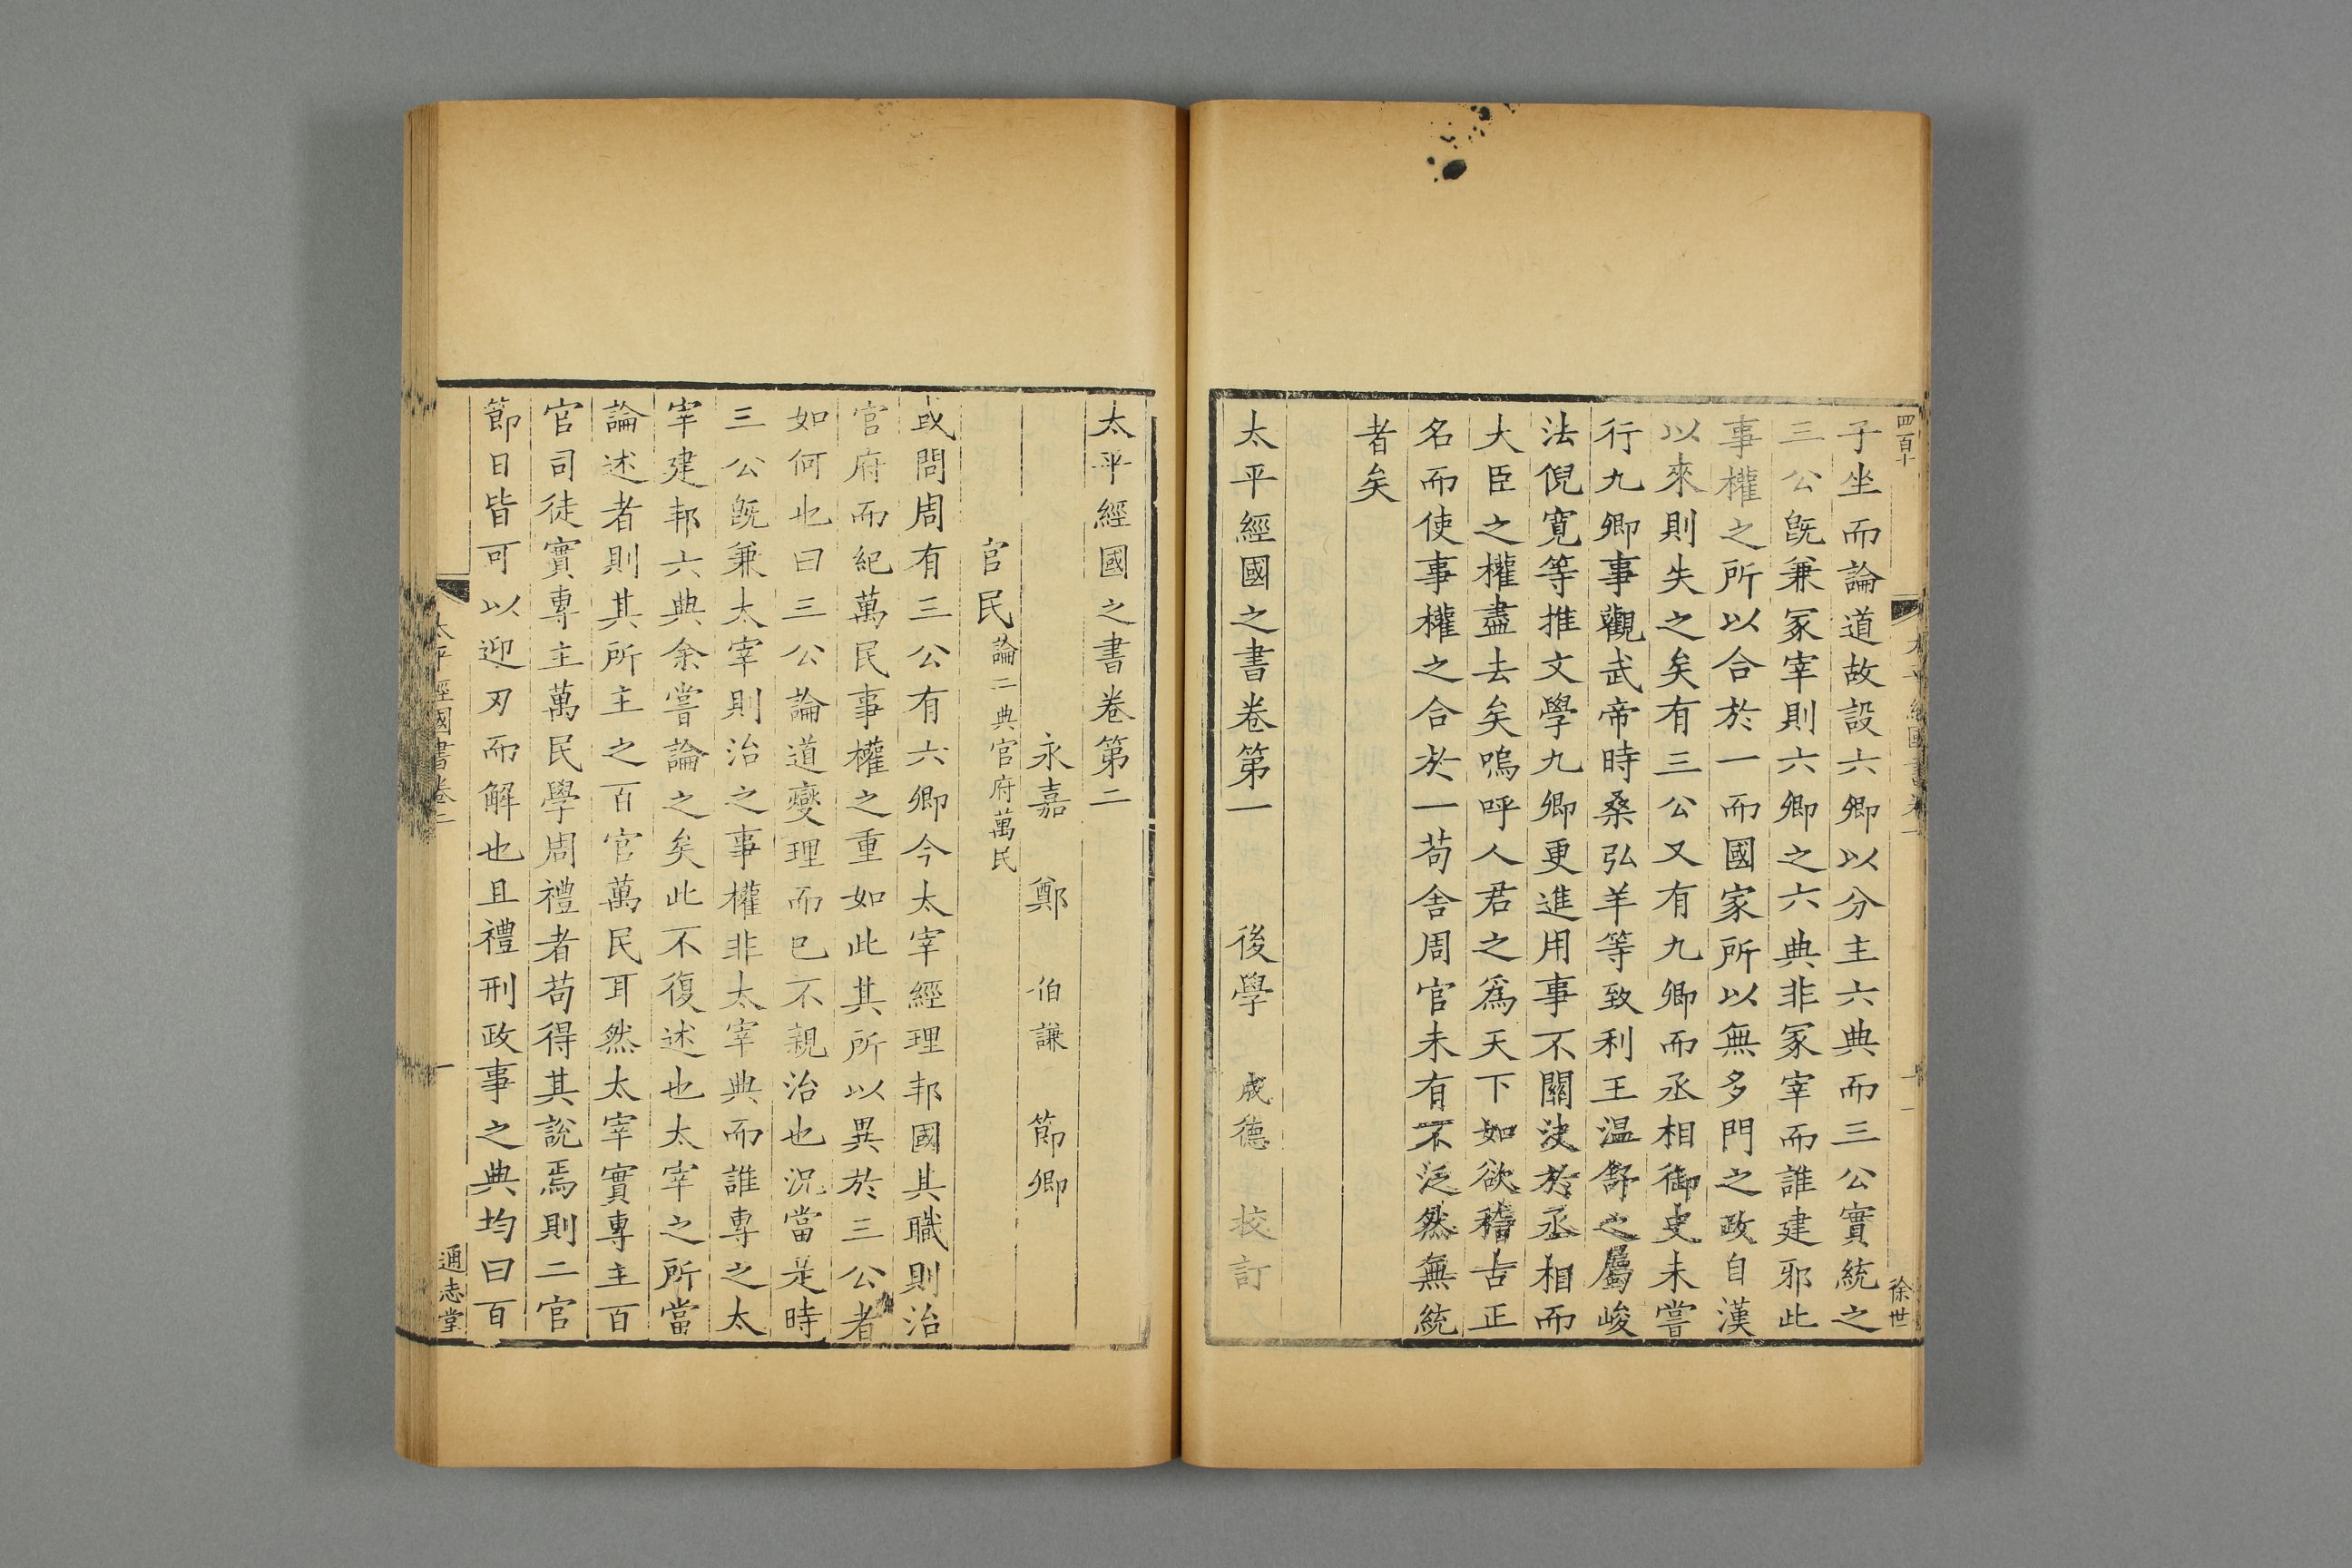 四百十
子坐而論道故設六卿以分主六典而三公實統之
三公既兼冢宰則六卿之六典非冢宰而誰建邪此
事權之所以合於一而國家所以無多門之政自漢
以來則失之矣有三公又有九卿而丞相御史未嘗
行九卿事觀武帝時桑弘羊等致利王温舒之屬峻
法倪寬等推文學九卿更進用事不關決於丞相而
大臣之權盡去矣嗚呼人君之爲天下如欲稽古正
名而使事權之合於一苟舍周官未有不泛然無統
者矣
太平經國之書卷第一 後學 成德 校訂
徐世
太平經國之書卷第二
永嘉 鄭 伯謙 節卿
官民論二典官府萬民
或問周有三公有六卿今太宰經理邦國其職則治
官府而紀萬民事權之重如此其所以異於三公者
如何也曰三公論道燮理而已不親治也況當是時
三公既兼太宰則治之事權非太宰典而誰專之太
宰建邦六典余嘗論之矣此不復述也太宰之所當
論述者則其所主之百官萬民耳然太宰實專主百
官司徒實專主萬民學周禮者苟得其說焉則二官
節目皆可以迎刃而解也且禮刑政事之典均曰百
太平經國書卷二 一 通志堂